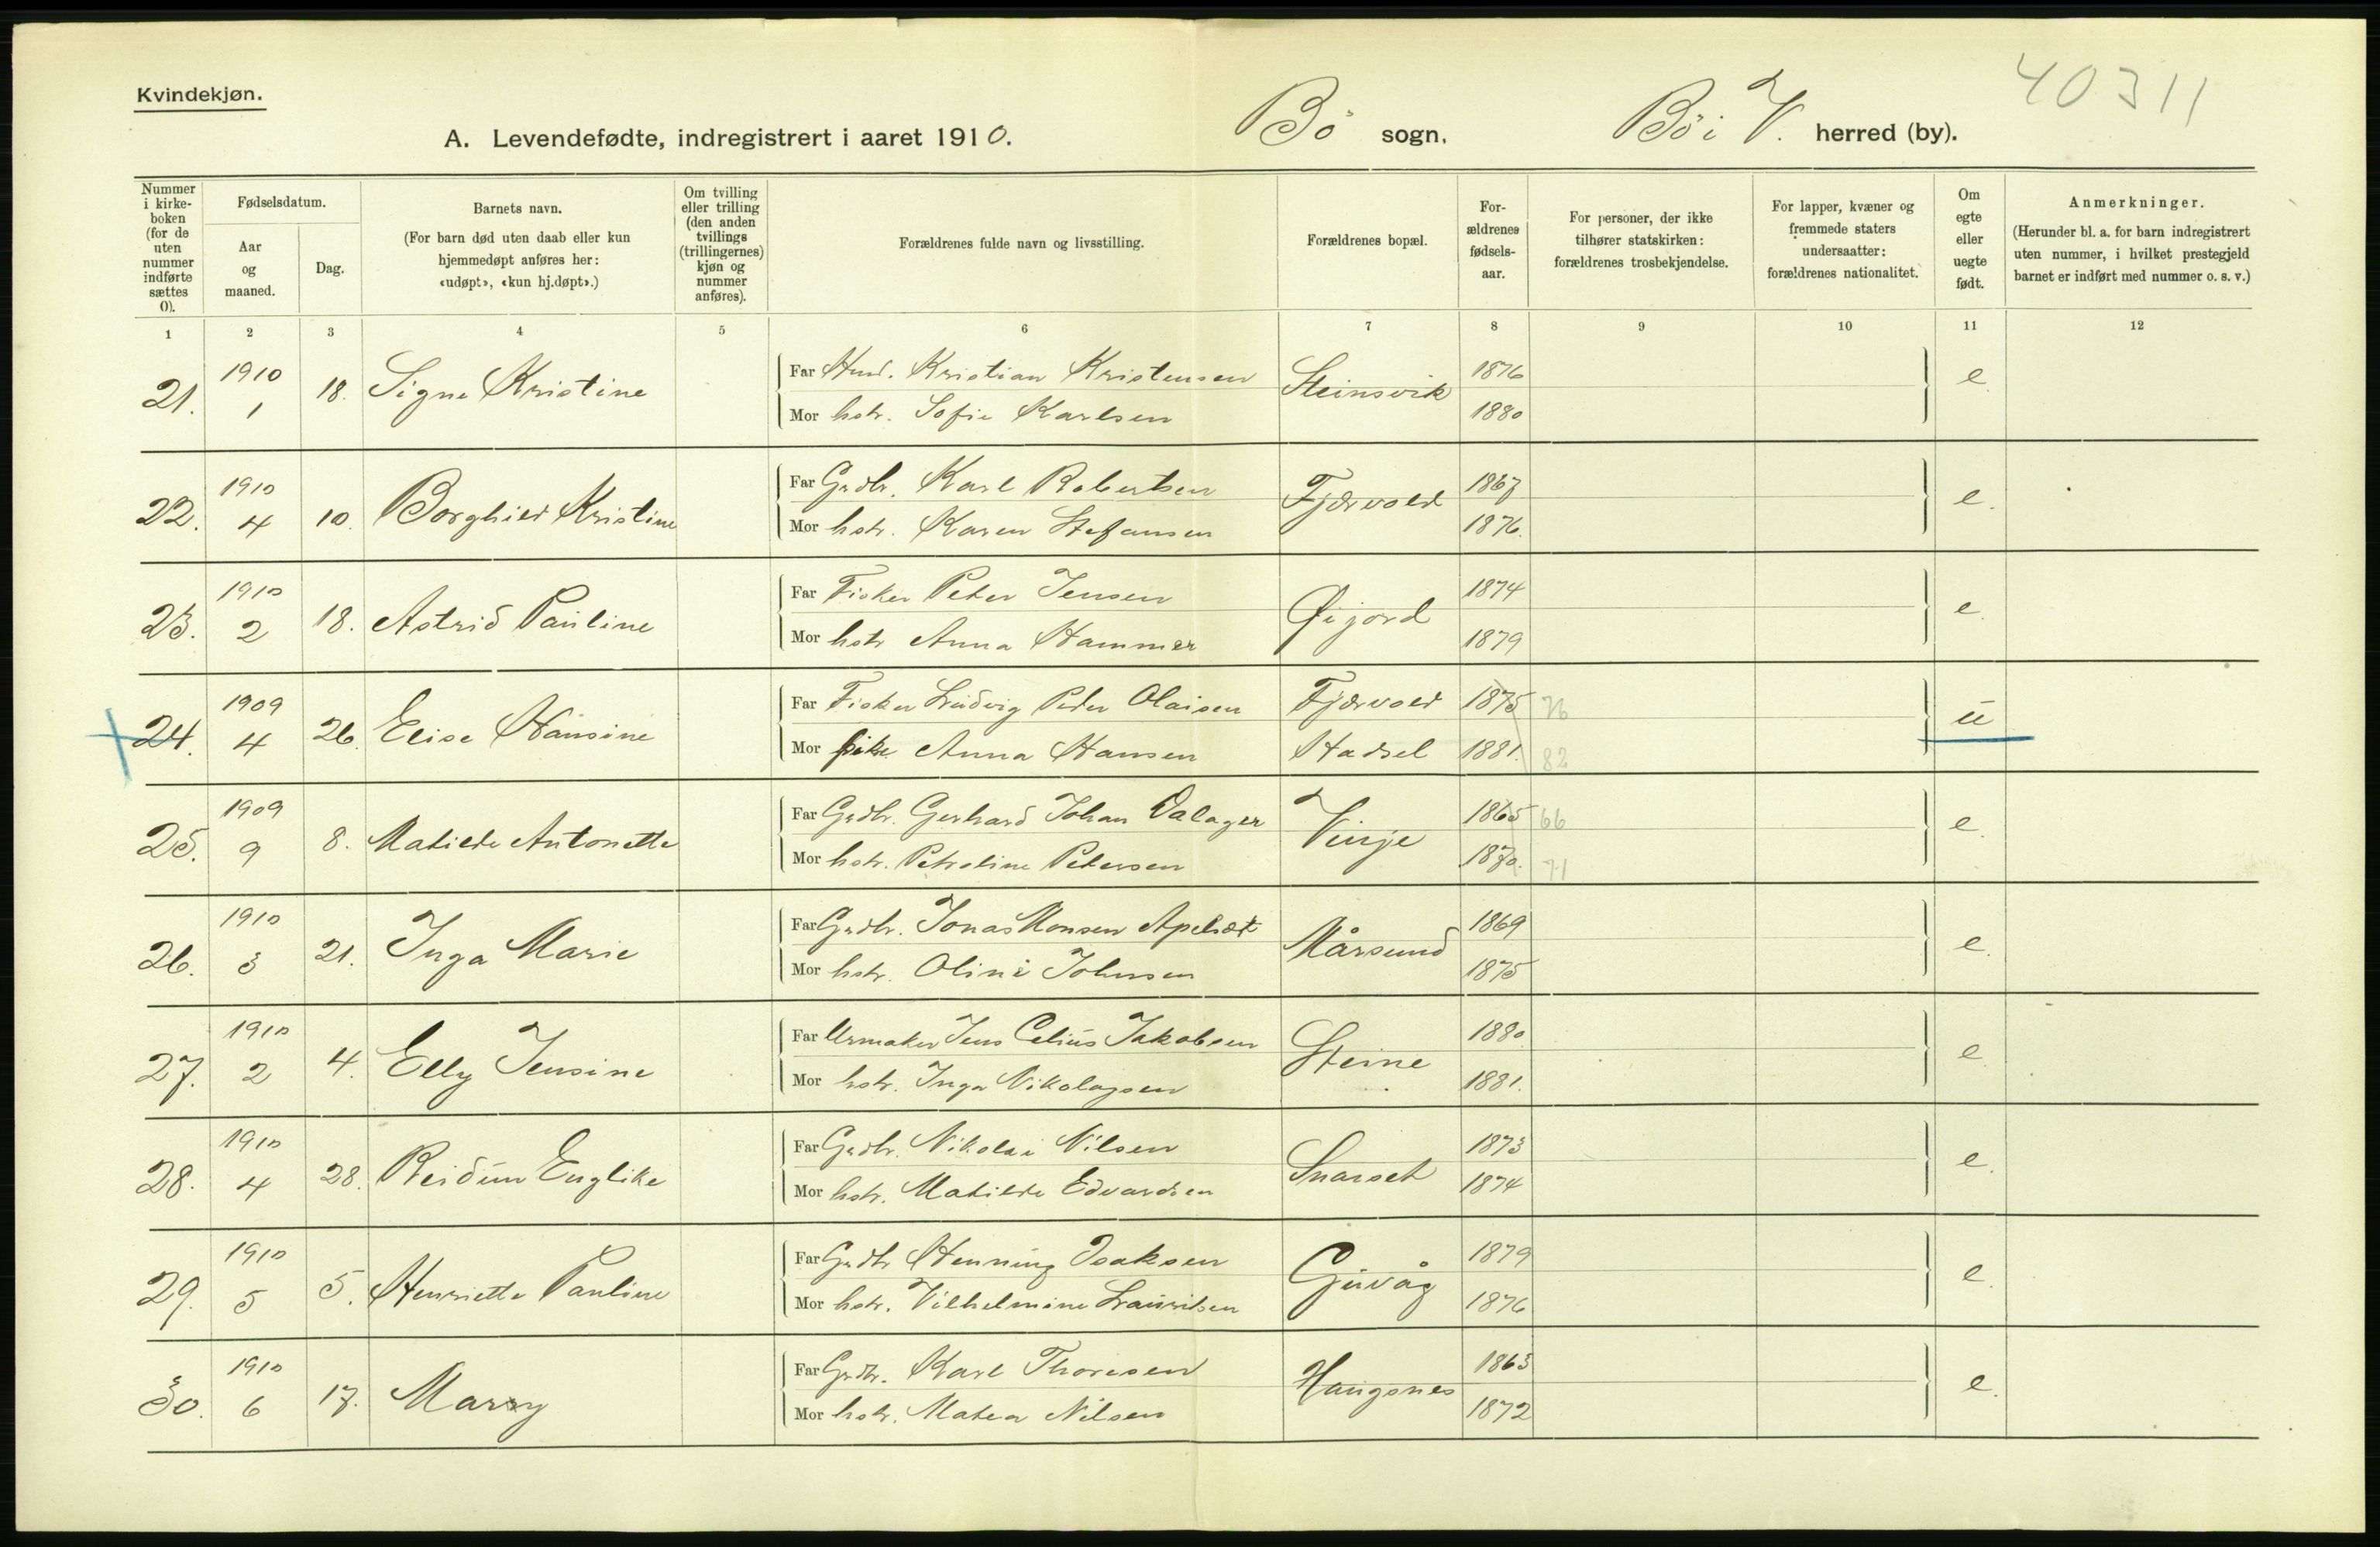 Kvindekjøn.
40311
A. Levendefødte, indregistrert i aaret 1910. Bö sogn. Bö i V. herred (by).
Nummer i kirke-boken (for de uten nummer indførte sættes 0).
Fødselsdatum.
Aar og maaned.
Dag.
Barnets navn.
(For barn død uten daab eller kun hjemmedøpt anføres her: «udøpt», «kun hj.døpt».)
Om tvilling eller trilling (den anden tvillings (trillingernes) kjøn og nummer anføres).
Forældrenes fulde navn og livsstilling.
Forældrenes bopæl.
For-ældrenes fødsels-aar.
For personer, der ikke tilhører statskirken: forældrenes trosbekjendelse.
For lapper, kvæner og fremmede staters undersaatter: forældrenes nationalitet.
Om egte eller uegte født.
Anmerkninger.
(Herunder bl. a. for barn indregistrert uten nummer, i hvilket prestegjeld barnet er indført med nummer o. s. v.)
1 2 3 4 5 6 7 8 9 10 11 12
21. 1910 1 18. Signe Kristine Far Kristian Kristensen Steinsvik 1876 e.
Mor hstr. Sofie Karlsen 1880
22. 1910 4 10. Borghild Kristine Far Grdbr. Karl Robertsen Fjærvold 1867 e.
Mor hstr. Karen Stefansen 1876.
23. 1910 2 18. Astrid Pauline Far Fisker Peter Jensen Øijord 1874 e.
Mor hstr Anna Hammer 1879
24. 1909 4 26. Elise Hansine Far Fisker Ludvig Peder Olaisen Fjærvold 1875 76 u
Mor pike Anna Hansen Hadsel 1881. 82
25. 1909 9 8. Matilde Antonette Far Grdbr. Gerhard Johan Valager Vinje 1865 66 e.
Mor hstr. Petroline Petersen 1870. 71
26. 1910 3 21. Inga Marie Far Grdbr. Jonas Monsen Apelsæt Mårsund 1869 e.
Mor hstr. Oline Johnsen 1875
27. 1910 2 4. Elly Jensine Far Urmaker Jens Celius Jakobsen Steine 1880 e
Mor hstr. Inga Nikolaysen 1881.
28. 1910 4 28. Reidun Englike Far Grdbr. Nikolai Nilsen Snarset 1873 e.
Mor hstr. Matilde Edvardsen 1874
29. 1910 5 5. Henriette Pauline Far Grdbr Henning Isaksen Guvåg 1879 e.
Mor hstr. Vilhelmine Lauritsen 1876
30. 1910 6 17. Marry Far Grdbr. Karl Thoresen Haugsnes 1863 e.
Mor hstr. Matea Nilsen 1872